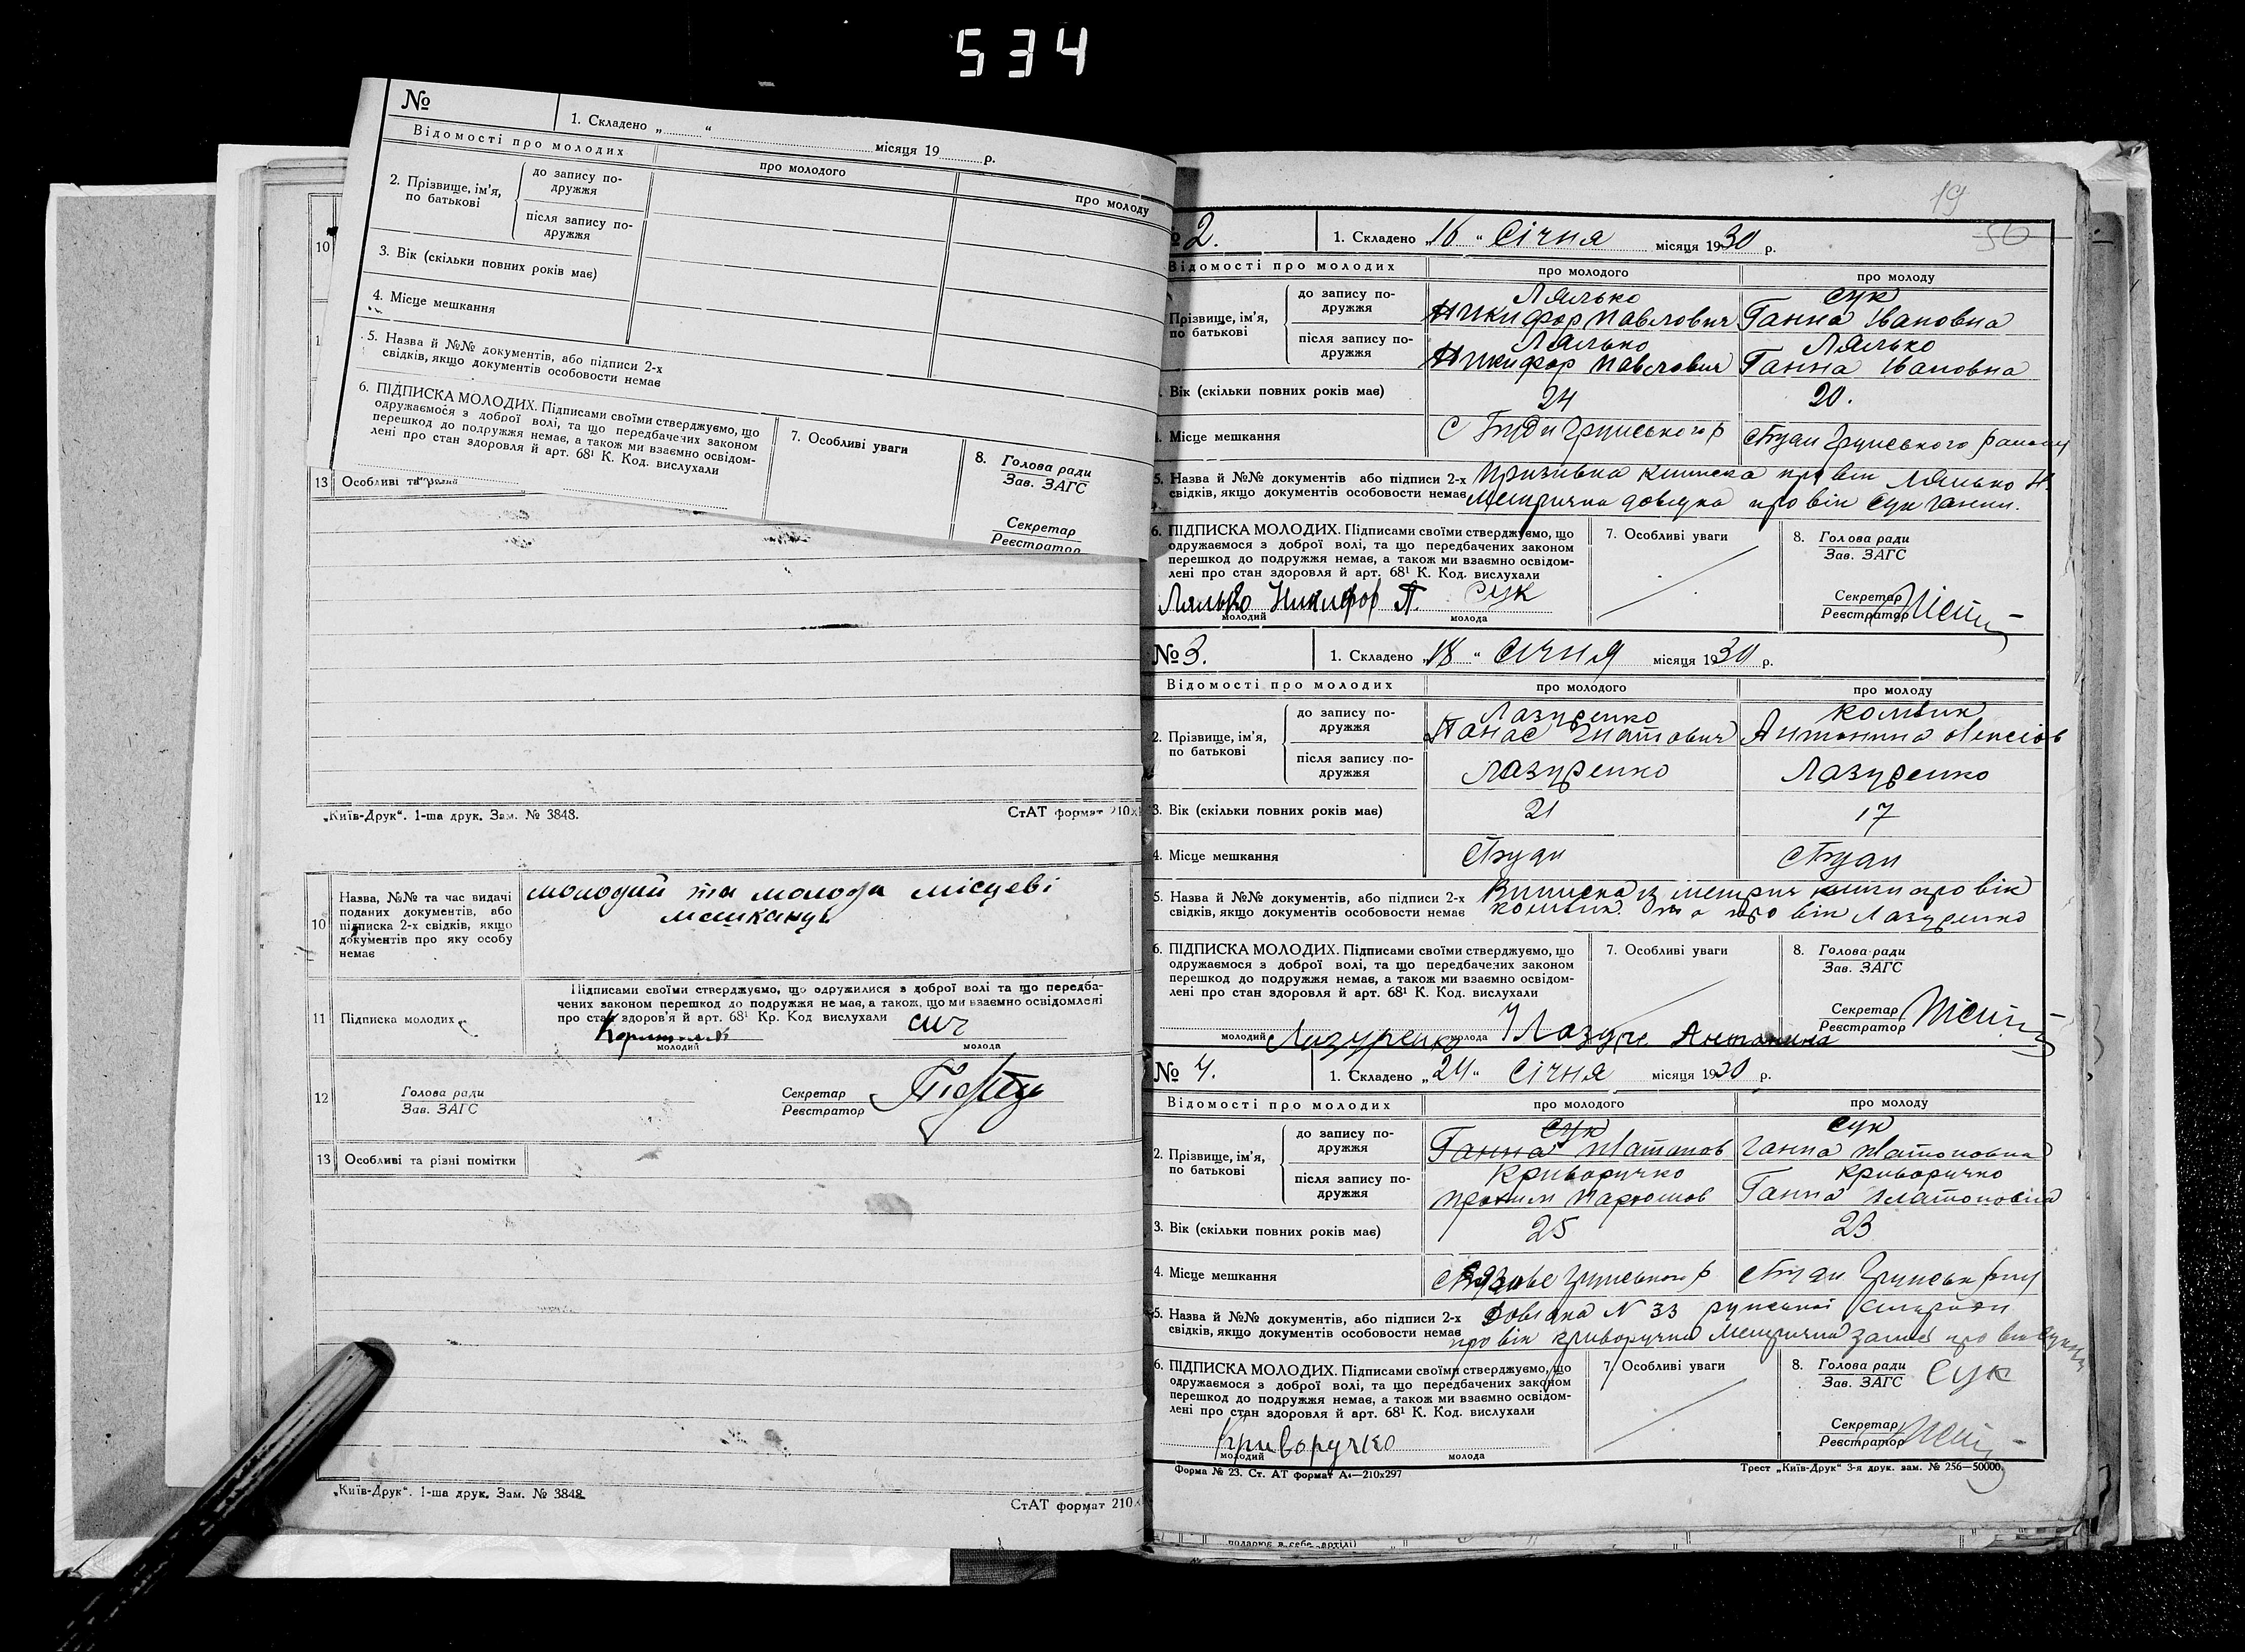 534
№
1. Складено „ “ місяця 19 р.
Відомості про молодих
про молодого
про молоду
2. Прізвище, ім'я,
по батькові
до запису по-
дружжя
після запису по-
дружжя
3. Вік (скільки повних років має)
4. Місце мешкання
5. Назва й №№ документів, або підписи 2-х
свідків, якщо документів особовости немає
6. ПІДПИСКА МОЛОДИХ. Підписами своїми стверджуємо, що
одружаємося з доброї волі, та що передбачених законом
перешкод до подружжя немає, а також ми взаємно освідом-
лені про стан здоровля й арт. 68¹ К. Код. вислухали
7. Особливі уваги
8. Голова ради
Зав. ЗАГС
Секретар
Реєстратор
10
13 Особливі та
„Київ-Друк“. 1-ша друк. Зам. № 3848.
СтАТ формат 210х
10
Назва, №№ та час видачі
поданих документів, або
підписка 2-х свідків, якщо
документів про яку особу
немає
молодий та молода місцеві
мешканці
11 Підписка молодих
Підписами своїми стверджуємо, що одружилися з доброї волі та що передба-
чених законом перешкод до подружжя не має, а також, що ми взаємно освідомлені
про стан здоров'я й арт. 68¹ Кр. Код вислухали
молодий
молода
12
Голова ради
Зав. ЗАГС
Секретар
Реєстратор
13 Особливі та різні помітки
„Київ-Друк“. 1-ша друк. Зам. № 3848
СтАТ формат 210
19
56
№ 2.
1. Складено „16“ Січня місяця 1930 р.
Відомості про молодих
про молодого
про молоду
Прізвище, ім'я,
по батькові
до запису по-
дружжя
Лялько
Никифор Павлович
Сук
Ганна Івановна
після запису по-
дружжя
Лялько
Никифор Павлович
Лялько
Ганна Івановна
Вік (скільки повних років має)
24
20.
Місце мешкання
с Буди Грунського р
с Буди Грунського району
5. Назва й №№ документів або підписи 2-х
свідків, якщо документів особовости немає
Призивна про вік Лялько Н.
Метрична довідка про вік Сук Ганни.
6. ПІДПИСКА МОЛОДИХ. Підписами своїми стверджуємо, що
одружаємося з доброї волі, та що передбачених законом
перешкод до подружжя немає, а також ми взаємно освідом-
лені про стан здоровля й арт. 68¹ К. Код. вислухали
Лялько Никифор П.
Сук
молодий
молода
7. Особливі уваги
8. Голова ради
Зав. ЗАГС
Секретар
Реєстратор
№ 3.
1. Складено „18“ Січня місяця 1930 р.
Відомості про молодих
про молодого
про молоду
2. Прізвище, ім'я,
по батькові
до запису по-
дружжя
Лазуренко
Панас Гнатович
Антонина Олексіов
після запису по-
дружжя
Лазуренко
Лазуренко
3. Вік (скільки повних років має)
21
17
4. Місце мешкання
с Буди
с Буди
5. Назва й №№ документів, або підписи 2-х
свідків, якщо документів особовости немає
Виписка із метрич книги про вік
про вік Лазуренко
6. ПІДПИСКА МОЛОДИХ. Підписами своїми стверджуємо, що
одружаємося з доброї волі, та що передбачених законом
перешкод до подружжя немає, а також ми взаємно освідом-
лені про стан здоровля й арт. 68¹ К. Код. вислухали
молодий
Лазуренко
молода
Антонина
7. Особливі уваги
8. Голова ради
Зав. ЗАГС
Секретар
Реєстратор
№ 4.
1. Складено „24“ Січня місяця 1930 р.
Відомості про молодих
про молодого
про молоду
2. Прізвище, ім'я,
по батькові
до запису по-
дружжя
Сук
Ганна Платонов
Сук
Ганна Платоновна
після запису по-
дружжя
Криворучко
Криворучко
Ганна Платоновна
3. Вік (скільки повних років має)
25
23
4. Місце мешкання
Грунського р
с Буди Грунськ р-ну
5. Назва й №№ документів, або підписи 2-х
свідків, якщо документів особовости немає
Довідка N 33 сільради
про вік Криворучка Метрична про вік
6. ПІДПИСКА МОЛОДИХ. Підписами своїми стверджуємо, що
одружаємося з доброї волі, та що передбачених законом
перешкод до подружжя немає, а також ми взаємно освідом-
лені про стан здоровля й арт. 68¹ К. Код. вислухали
Криворучко
молодий
молода
7. Особливі уваги
8. Голова ради
Зав. ЗАГС
Сук
Секретар
Реєстратор
Форма № 23. Ст. АТ формат А₄—210х297
Трест „Київ-Друк“ 3-я друк. зам. № 256—50000.